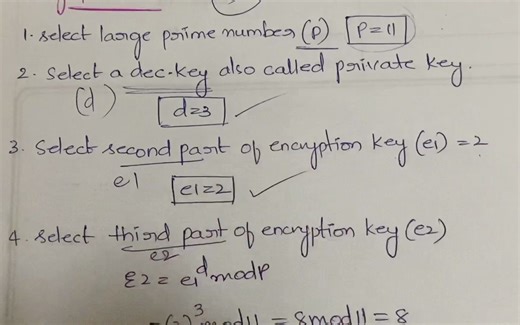 1. select large prime number (p) P=11
2. select a dec.key also called private key.
(d) d=3
3. Select second part of encryption key (e1) = 2
e1 e1=2
4. select third part of encryption key (e2)
e2
E2 = e1^d mod P
= (2)^3 mod 11 = 8 mod 11 = 8